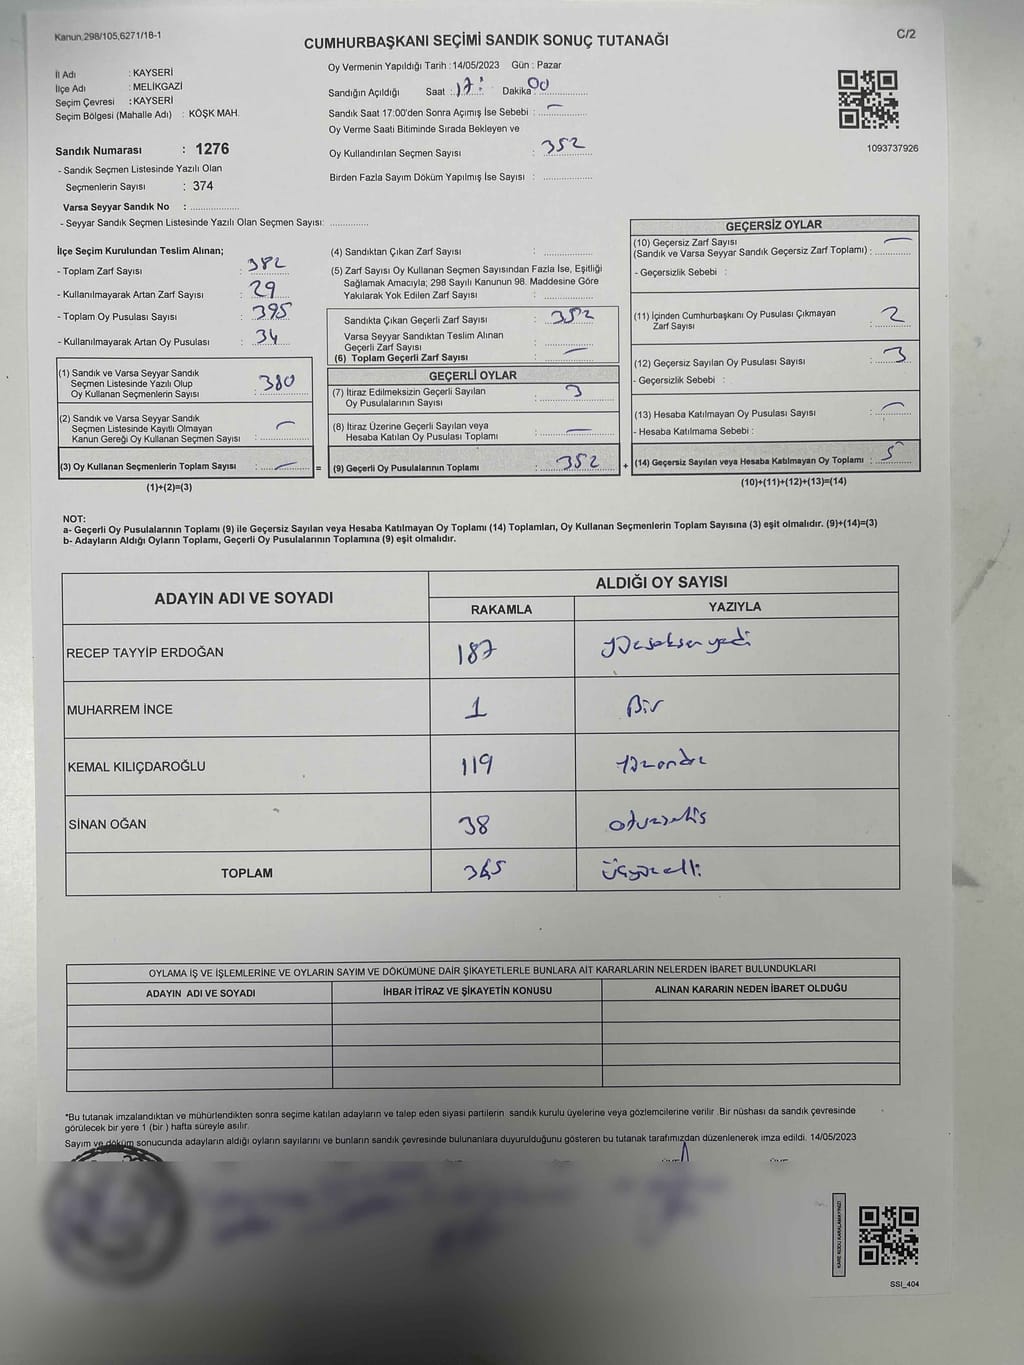 Kanun.298/105,6271/18-1
C/2
CUMHURBAŞKANI SEÇİMİ SANDIK SONUÇ TUTANAĞI
İl Adı : KAYSERİ
İlçe Adı : MELİKGAZİ
Seçim Çevresi : KAYSERİ
Seçim Bölgesi (Mahalle Adı) : KÖŞK MAH.
Sandık Numarası : 1276
- Sandık Seçmen Listesinde Yazılı Olan
Seçmenlerin Sayısı : 374
Varsa Seyyar Sandık No : ....................
- Seyyar Sandık Seçmen Listesinde Yazılı Olan Seçmen Sayısı: ................
Oy Vermenin Yapıldığı Tarih :14/05/2023 Gün : Pazar
Sandığın Açıldığı Saat : 17: Dakika 00
Sandık Saat 17:00'den Sonra Açımış İse Sebebi : —
Oy Verme Saati Bitiminde Sırada Bekleyen ve
Oy Kullandırılan Seçmen Sayısı : 352
Birden Fazla Sayım Döküm Yapılmış İse Sayısı : ....................
1093737926
İlçe Seçim Kurulundan Teslim Alınan;
- Toplam Zarf Sayısı : 382
- Kullanılmayarak Artan Zarf Sayısı : 29
- Toplam Oy Pusulası Sayısı : 395
- Kullanılmayarak Artan Oy Pusulası : 34
(1) Sandık ve Varsa Seyyar Sandık
Seçmen Listesinde Yazılı Olup
Oy Kullanan Seçmenlerin Sayısı : 380
(2) Sandık ve Varsa Seyyar Sandık
Seçmen Listesinde Kayıtlı Olmayan
Kanun Gereği Oy Kullanan Seçmen Sayısı : —
(3) Oy Kullanan Seçmenlerin Toplam Sayısı : — =
(1)+(2)=(3)
(4) Sandıktan Çıkan Zarf Sayısı : ....................
(5) Zarf Sayısı Oy Kullanan Seçmen Sayısından Fazla İse, Eşitliği
Sağlamak Amacıyla; 298 Sayılı Kanunun 98. Maddesine Göre
Yakılarak Yok Edilen Zarf Sayısı : ....................
Sandıkta Çıkan Geçerli Zarf Sayısı : 352
Varsa Seyyar Sandıktan Teslim Alınan
Geçerli Zarf Sayısı : ....................
(6) Toplam Geçerli Zarf Sayısı : —
GEÇERLİ OYLAR
(7) İtiraz Edilmeksizin Geçerli Sayılan
Oy Pusulalarının Sayısı : 3
(8) İtiraz Üzerine Geçerli Sayılan veya
Hesaba Katılan Oy Pusulası Toplamı : —
(9) Geçerli Oy Pusulalarının Toplamı : 352 +
GEÇERSİZ OYLAR
(10) Geçersiz Zarf Sayısı
(Sandık ve Varsa Seyyar Sandık Geçersiz Zarf Toplamı) : —
- Geçersizlik Sebebi :
(11) İçinden Cumhurbaşkanı Oy Pusulası Çıkmayan
Zarf Sayısı : 2
(12) Geçersiz Sayılan Oy Pusulası Sayısı : 3
- Geçersizlik Sebebi :
(13) Hesaba Katılmayan Oy Pusulası Sayısı : —
- Hesaba Katılmama Sebebi :
(14) Geçersiz Sayılan veya Hesaba Katılmayan Oy Toplamı : 5
(10)+(11)+(12)+(13)=(14)
NOT:
a- Geçerli Oy Pusulalarının Toplamı (9) ile Geçersiz Sayılan veya Hesaba Katılmayan Oy Toplamı (14) Toplamları, Oy Kullanan Seçmenlerin Toplam Sayısına (3) eşit olmalıdır. (9)+(14)=(3)
b- Adayların Aldığı Oyların Toplamı, Geçerli Oy Pusulalarının Toplamına (9) eşit olmalıdır.
ADAYIN ADI VE SOYADI ALDIĞI OY SAYISI
RAKAMLA YAZIYLA
RECEP TAYYİP ERDOĞAN 187
MUHARREM İNCE 1 Bir
KEMAL KILIÇDAROĞLU 119
SİNAN OĞAN 38
TOPLAM
OYLAMA İŞ VE İŞLEMLERİNE VE OYLARIN SAYIM VE DÖKÜMÜNE DAİR ŞİKAYETLERLE BUNLARA AİT KARARLARIN NELERDEN İBARET BULUNDUKLARI
ADAYIN ADI VE SOYADI İHBAR İTİRAZ VE ŞİKAYETİN KONUSU ALINAN KARARIN NEDEN İBARET OLDUĞU
*Bu tutanak imzalandıktan ve mühürlendikten sonra seçime katılan adayların ve talep eden siyasi partilerin sandık kurulu üyelerine veya gözlemcilerine verilir .Bir nüshası da sandık çevresinde
görülecek bir yere 1 (bir ) hafta süreyle asılır.
Sayım ve döküm sonucunda adayların aldığı oyların sayılarını ve bunların sandık çevresinde bulunanlara duyurulduğunu gösteren bu tutanak tarafımızdan düzenlenerek imza edildi. 14/05/2023
KARE KODU KARALAMAYINIZ!
SSI_404